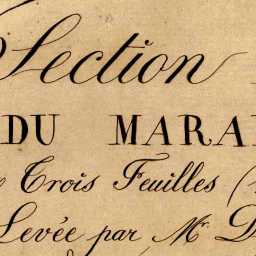 Section
DU MARA
Trois Feuilles (
Levée par Mr D